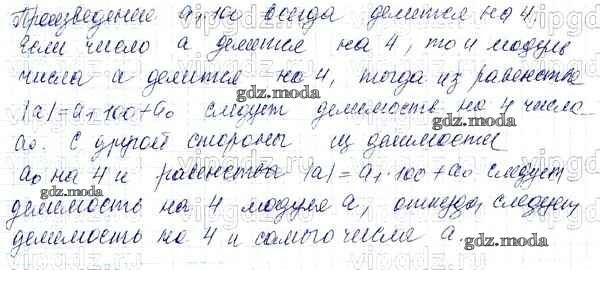 Произведение a₁·100 всегда делится на 4.
Если число a делится на 4, то и модуль
числа a делится на 4, тогда из равенства
|a|=a₁·100+a₀ следует делимость на 4 числа
a₀. С другой стороны из делимости
a₀ на 4 и равенства |a|=a₁·100+a₀ следует
делимость на 4 модуля a, откуда следует
делимость на 4 и самого числа a.
gdz.moda
gdz.moda
gdz.moda
gdz.moda
gdz.moda